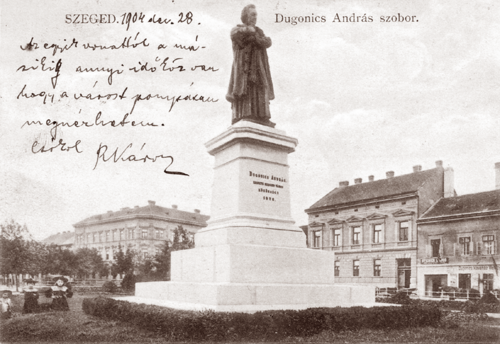 SZEGED. 1904 dec. 28.
Dugonics András szobor.
Az egyik vonattól a má-
sikig annyi időköz van
hogy a várost pompásan
megnézhetem.
Csókol RKároly
DUGONICS ANDRÁS